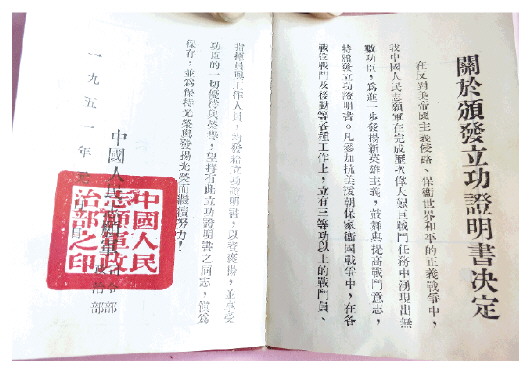 關於頒發立功證明書决定
在反對美帝國主義侵略、保衛世界和平的正義戰爭中，
我中國人民志願軍在完成歷次偉大艱巨戰鬥任務中湧現出無
數功臣，爲進一步發揚新英雄主義，鼓舞與提高戰鬥意志，
特頒發立功證明書。凡參加抗美援朝保家衛國戰爭中，在各
戰役戰鬥及後勤等各種工作上，立有三等功以上的戰鬥員、
指揮員職工作人員，均發給立功證明書，以資褒揚，並享受
功臣的一切優待與榮譽，望持有此立功證明書之同志，
保存；並爲保持光榮與發揚光榮而繼續努力！
中國人民志願軍
政治部
一九五一年
中國人民
志願軍政
治部之印